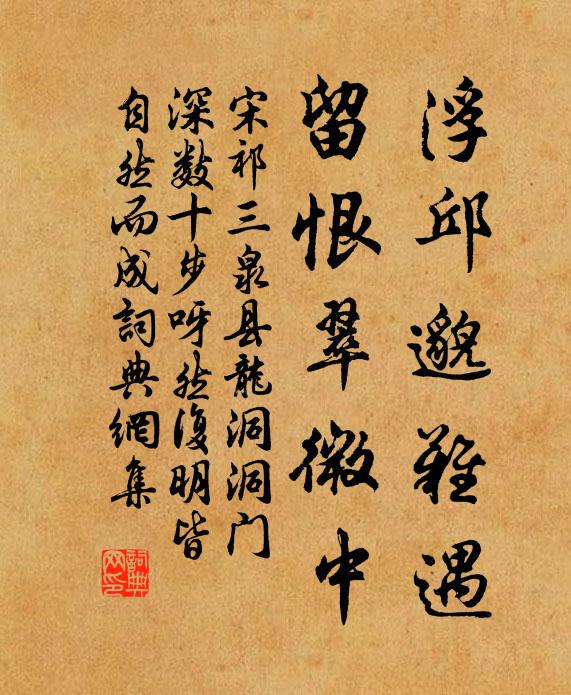 浮邱邈难遇
留恨翠微中
宋祁三泉县龍洞洞门
深数十步呀然復明皆
自然而成詞典網集
詞典
网印